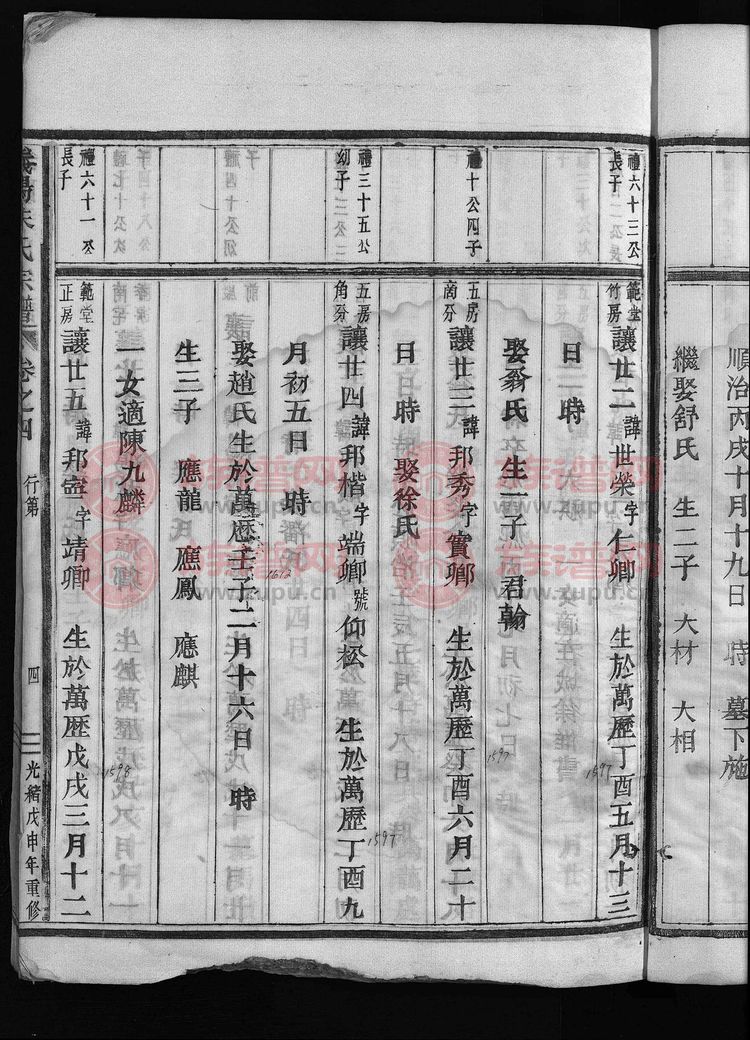 順治丙戌十月十九日 時 墓下施
繼娶舒氏 生二子 大材 大相
禮六十三公
長子
範堂
竹房
讓廿二諱世榮字仁卿 生於萬歷丁酉五月十三
1597
日 時
娶翁氏 生一子 君翰
禮十公四子
五房
商分
讓廿三諱邦秀字實卿 生於萬歷丁酉六月二十
1597
日 時 娶徐氏
禮三十五公
幼子
五房
角分
讓廿四諱邦楷字端卿號仰松 生於萬歷丁酉九
1597
月初五日 時
娶趙氏生於萬歷壬子二月十六日 時
1612
生三子 應龍 應鳳 應麒
一女適陳九麟
禮六十一公
長子
範堂
正房
讓廿五諱邦寧字靖卿 生於萬歷戊戌三月十二
1598
氏宗譜 卷之四 行第 四 光緒戊申年重修
族谱网
www.zupu.cn
族谱网
www.zupu.cn
族谱网
www.zupu.cn